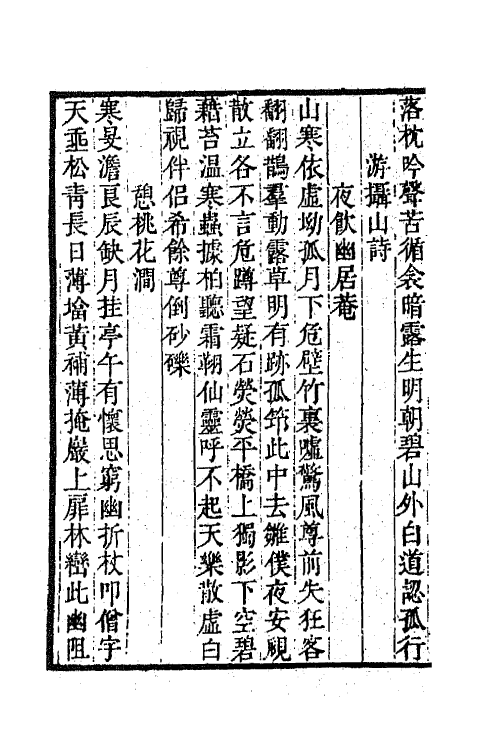 落枕吟聲苦循衾暗露生明朝碧山外白道認孤行
游攝山詩
夜飲幽居菴
山寒依虛坳孤月下危壁竹裏噓驚風尊前失狂客
翩翩鵲羣動露草明有跡孤筇此中去雛僕夜安視
散立各不言危蹲望疑石熒熒平橋上獨影下空碧
藉苔溫寒蟲據柏聽霜翮仙靈呼不起天樂散虛白
歸視伴侶希餘尊倒砂礫
憩桃花澗
寒旻澹良辰缺月挂亭午有懷思窮幽折杖叩僧宇
天垂松靑長日薄墖黃補薄掩巖上扉林巒此幽阻